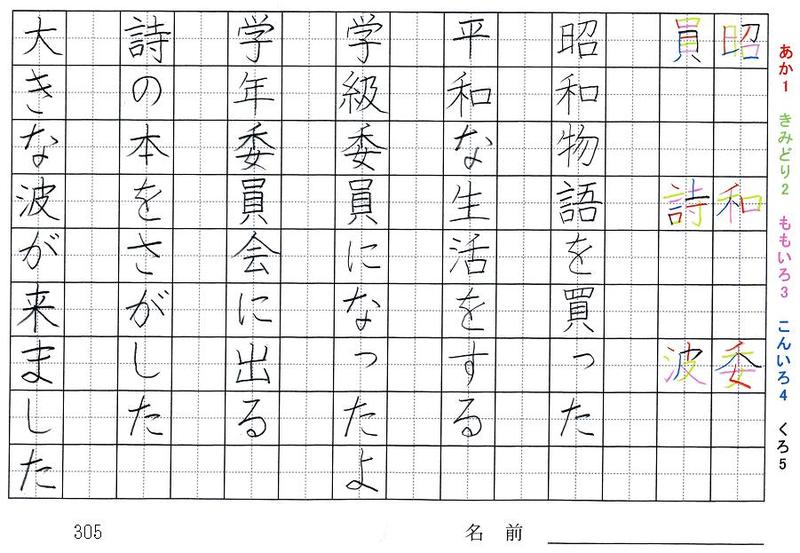 あか1 きみどり2 ももいろ3 こんいろ4 くろ5
昭 和 委
員 詩 波
昭和物語を買った
平和な生活をする
学級委員になったよ
学年委員会に出る
詩の本をさがした
大きな波が来ました
305
名前